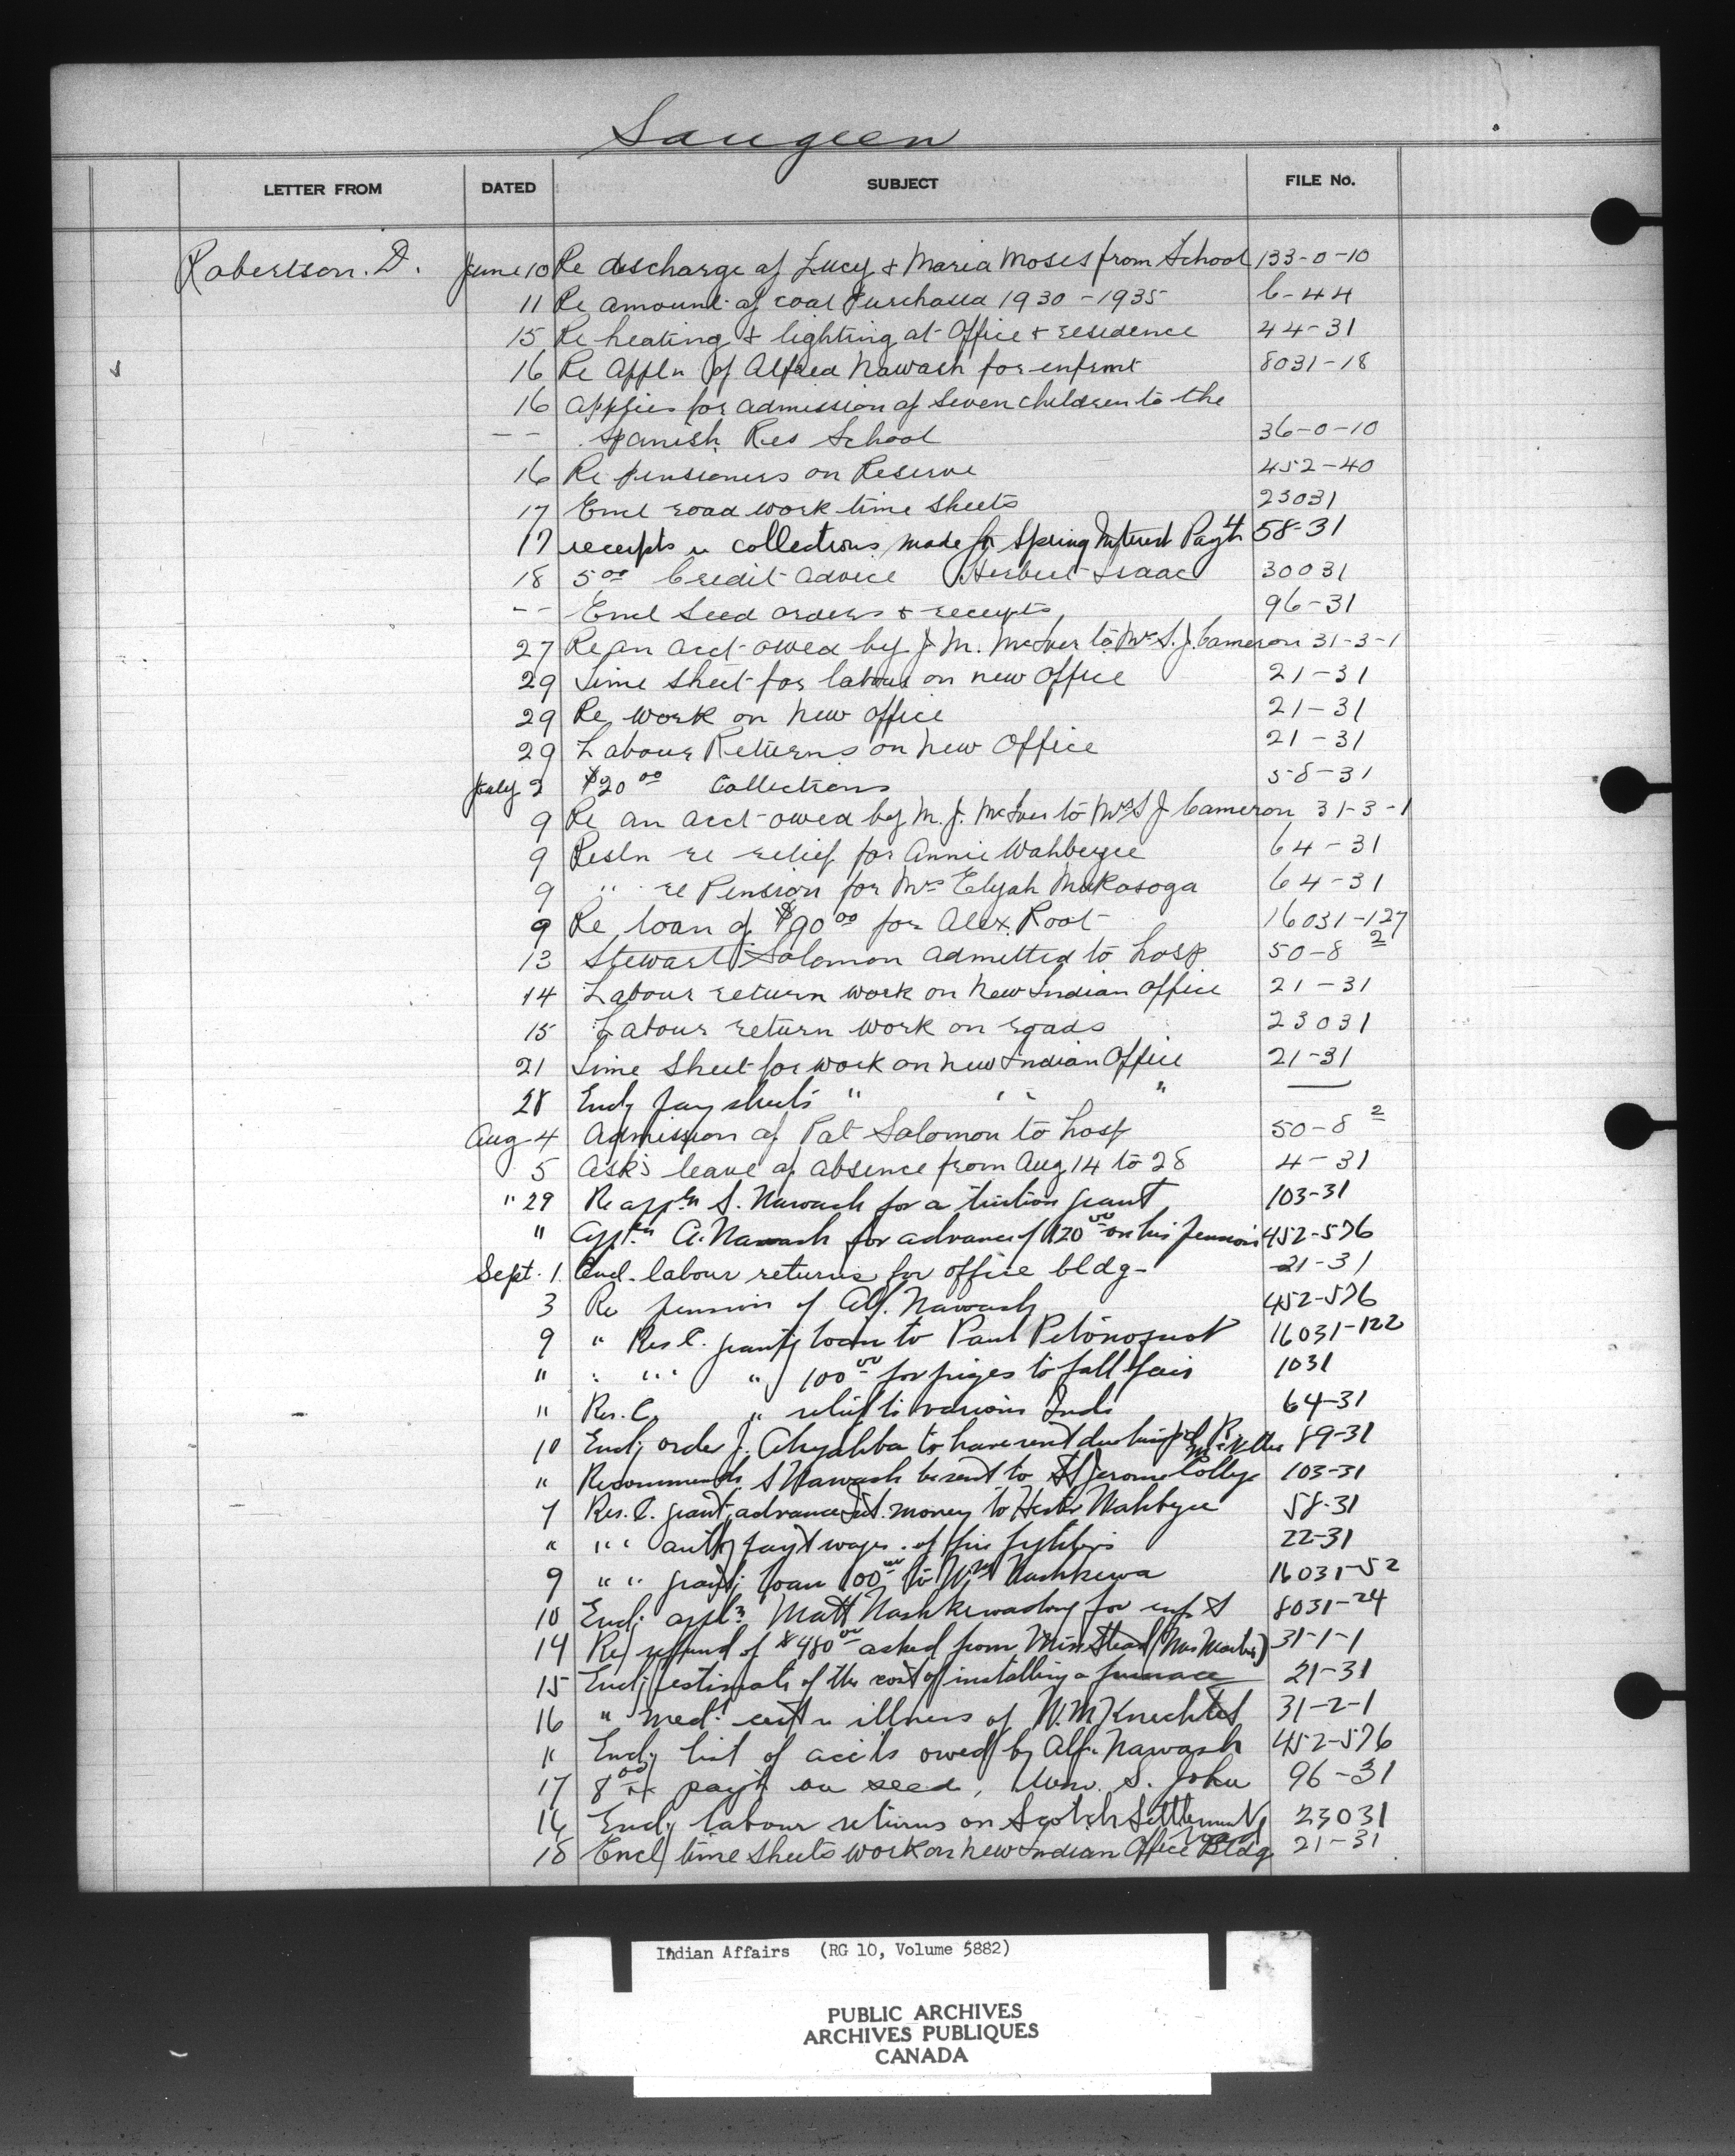 Saugeen
LETTER FROM DATED SUBJECT FILE No.
Robertson. D. June 10 Re discharge of Lucy & Maria Moses from School 133-0-10
11 Re amount of coal Purchased 1930-1935 6-44
15 Re heating & lighting at Office & residence 44-31
16 Re Appln of Alfred Nawash for enfrmt 8031-18
16 applies for admission of seven children to the
-- Spanish Res School 36-0-10
16 Re pensioners on Reserve 452-40
17 Encl road work time sheets 23031
17 receipts re collections made fr Spring Interest Payt 58-31
18 5.00 Credit Advice Herbert Isaac 30031
-- Encl Seed orders & receipts 96-31
27 Re an acct owed by J. M. McIver to Mrs S. J. Cameron 31-3-1
29 Time Sheet for labour on new Office 21-31
29 Re work on new office 21-31
29 Labour Returns on new Office 21-31
July 2 $20.00 Collections 58-31
9 Re an acct owed by M. J. McIver to Mrs S J Cameron 31-3-1
9 Resln re relief for Annie Wahbezee 64-31
9 " re Pension for Mrs Elijah Mukasoga 64-31
9 Re loan of $90.00 for Alex. Root 16031-127
13 Stewart Solomon admitted to hosp 50-8 2
14 Labour return work on New Indian Office 21-31
15 Labour return work on roads 23031
21 Time Sheet for work on new Indian Office 21-31
28 Encl pay sheets " " " —
Aug 4 Admission of Pat Solomon to hosp 50-8 2
5 Asks leave of absence from Aug 14 to 28 4-31
" 29 Re appln S. Nawash for a tuition grant 103-31
" Appln A. Nawash for advance of 120.00 on his pension 452-576
Sept. 1 Encl. labour returns for office bldg- 21-31
3 Re pension of Alf. Nawash 452-576
9 " Res C. grantg loan to Paul Petonoquot 16031-122
" " " " " 100.00 for prizes to fall fair 1031
" Res. C. " relief to various Inds 64-31
10 Encl. order J. Ahyahba to have rent due him pd 89-31
" Recommends S Nawash be sent to St Jerome College 103-31
7 Res. C. grantg advance Int. money to Wahbezee 58-31
" " " authg payt wages of fire fighters 22-31
9 " " grantg loan 100.00 to Wm Nashkewa 16031-52
10 Encl. appln Matt Nashkewadong for enf't 8031-24
14 Re refund of $480.00 asked from Miss Stead 31-1-1
15 Encl. estimate of the cost of installing a furnace 21-31
16 " med. cert re illness of W. M Knechtel 31-2-1
" Encl. list of accts owed by Alf. Nawash 452-576
17 8.00 pay't on seed, S. John 96-31
16 Encl. labour returns on Scotch Settlement Road 23031
18 Encl time sheets work on new Indian Office Bldg 21-31
Indian Affairs (RG 10, Volume 5882)
PUBLIC ARCHIVES
ARCHIVES PUBLIQUES
CANADA